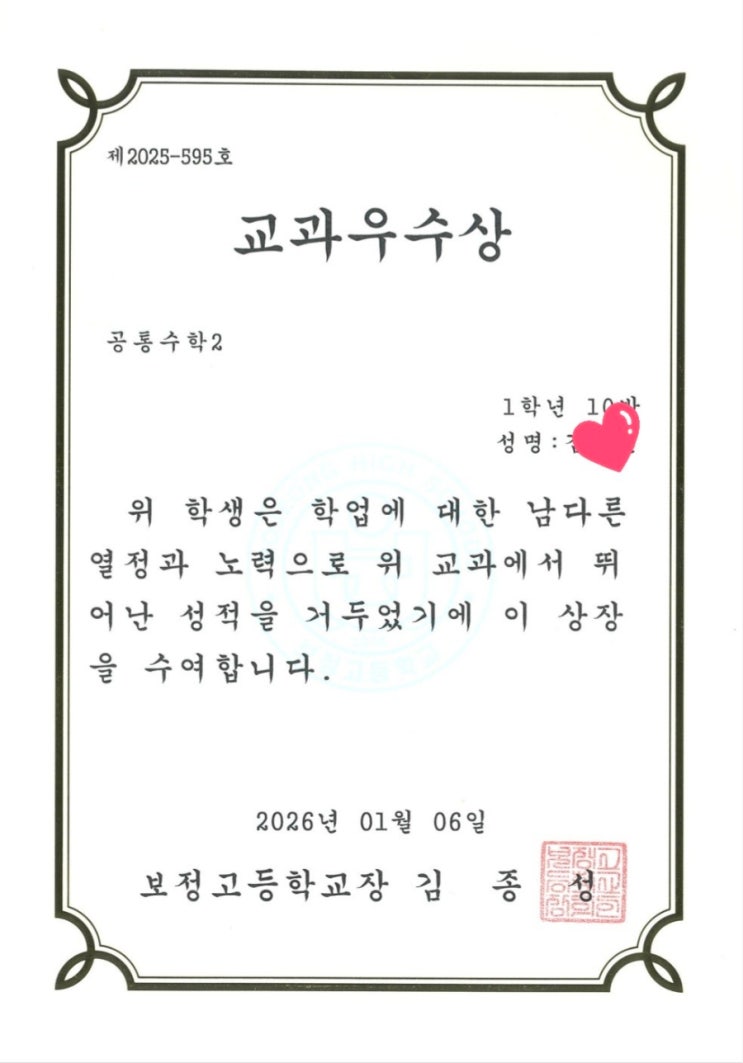 제2025-595호
교과우수상
공통수학2
1학년 10반
성명:
위 학생은 학업에 대한 남다른
열정과 노력으로 위 교과에서 뛰
어난 성적을 거두었기에 이 상장
을 수여합니다.
2026년 01월 06일
보정고등학교장 김 종 성